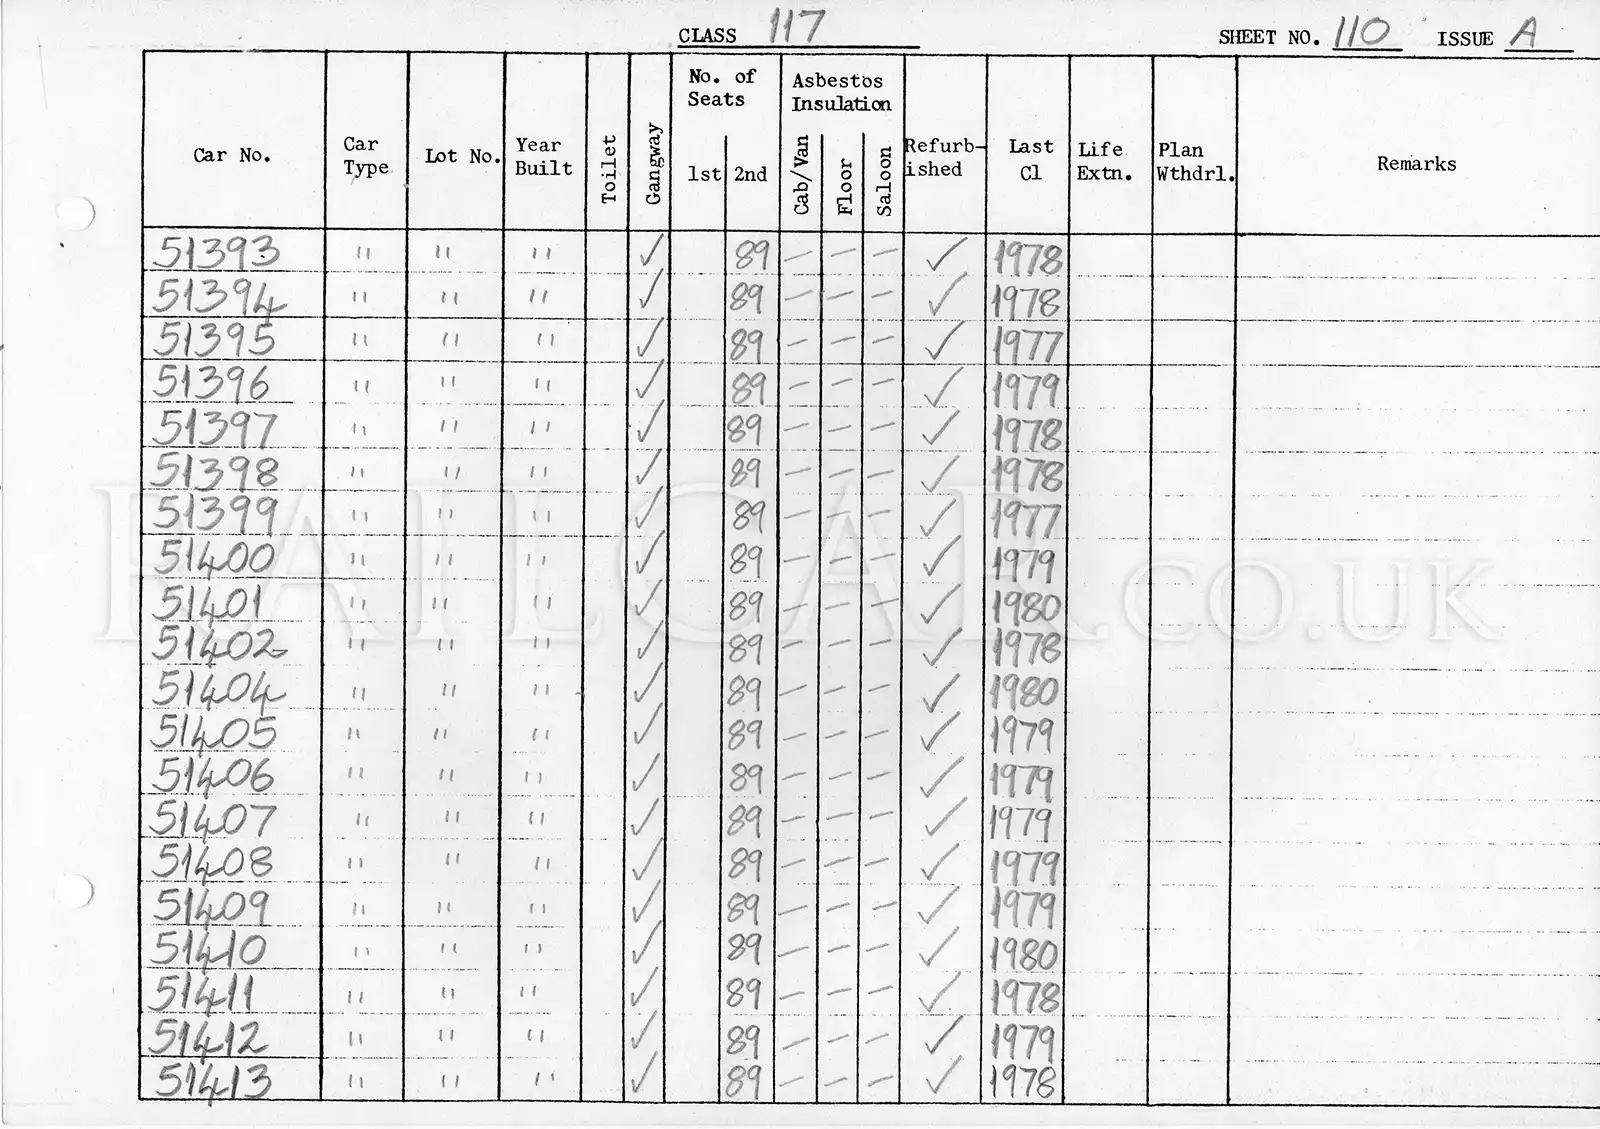 CLASS 117 SHEET NO. 110 ISSUE A
No. of Seats Asbestos Insulation
Car No. Car Type Lot No. Year Built Toilet Gangway 1st 2nd Cab/Van Floor Saloon Refurb-ished Last Cl Life Extn. Plan Wthdrl. Remarks
51393 " " " ✓ 89 — — — ✓ 1978
51394 " " " ✓ 89 — — — ✓ 1978
51395 " " " ✓ 89 — — — ✓ 1977
51396 " " " ✓ 89 — — — ✓ 1979
51397 " " " ✓ 89 — — — ✓ 1978
51398 " " " ✓ 89 — — — ✓ 1978
51399 " " " ✓ 89 — — — ✓ 1977
51400 " " " ✓ 89 — — — ✓ 1979
51401 " " " ✓ 89 — — — ✓ 1980
51402 " " " ✓ 89 — — — ✓ 1978
51404 " " " ✓ 89 — — — ✓ 1980
51405 " " " ✓ 89 — — — ✓ 1979
51406 " " " ✓ 89 — — — ✓ 1979
51407 " " " ✓ 89 — — — ✓ 1979
51408 " " " ✓ 89 — — — ✓ 1979
51409 " " " ✓ 89 — — — ✓ 1979
51410 " " " ✓ 89 — — — ✓ 1980
51411 " " " ✓ 89 — — — ✓ 1978
51412 " " " ✓ 89 — — — ✓ 1979
51413 " " " ✓ 89 — — — ✓ 1978
RAILCAR.CO.UK